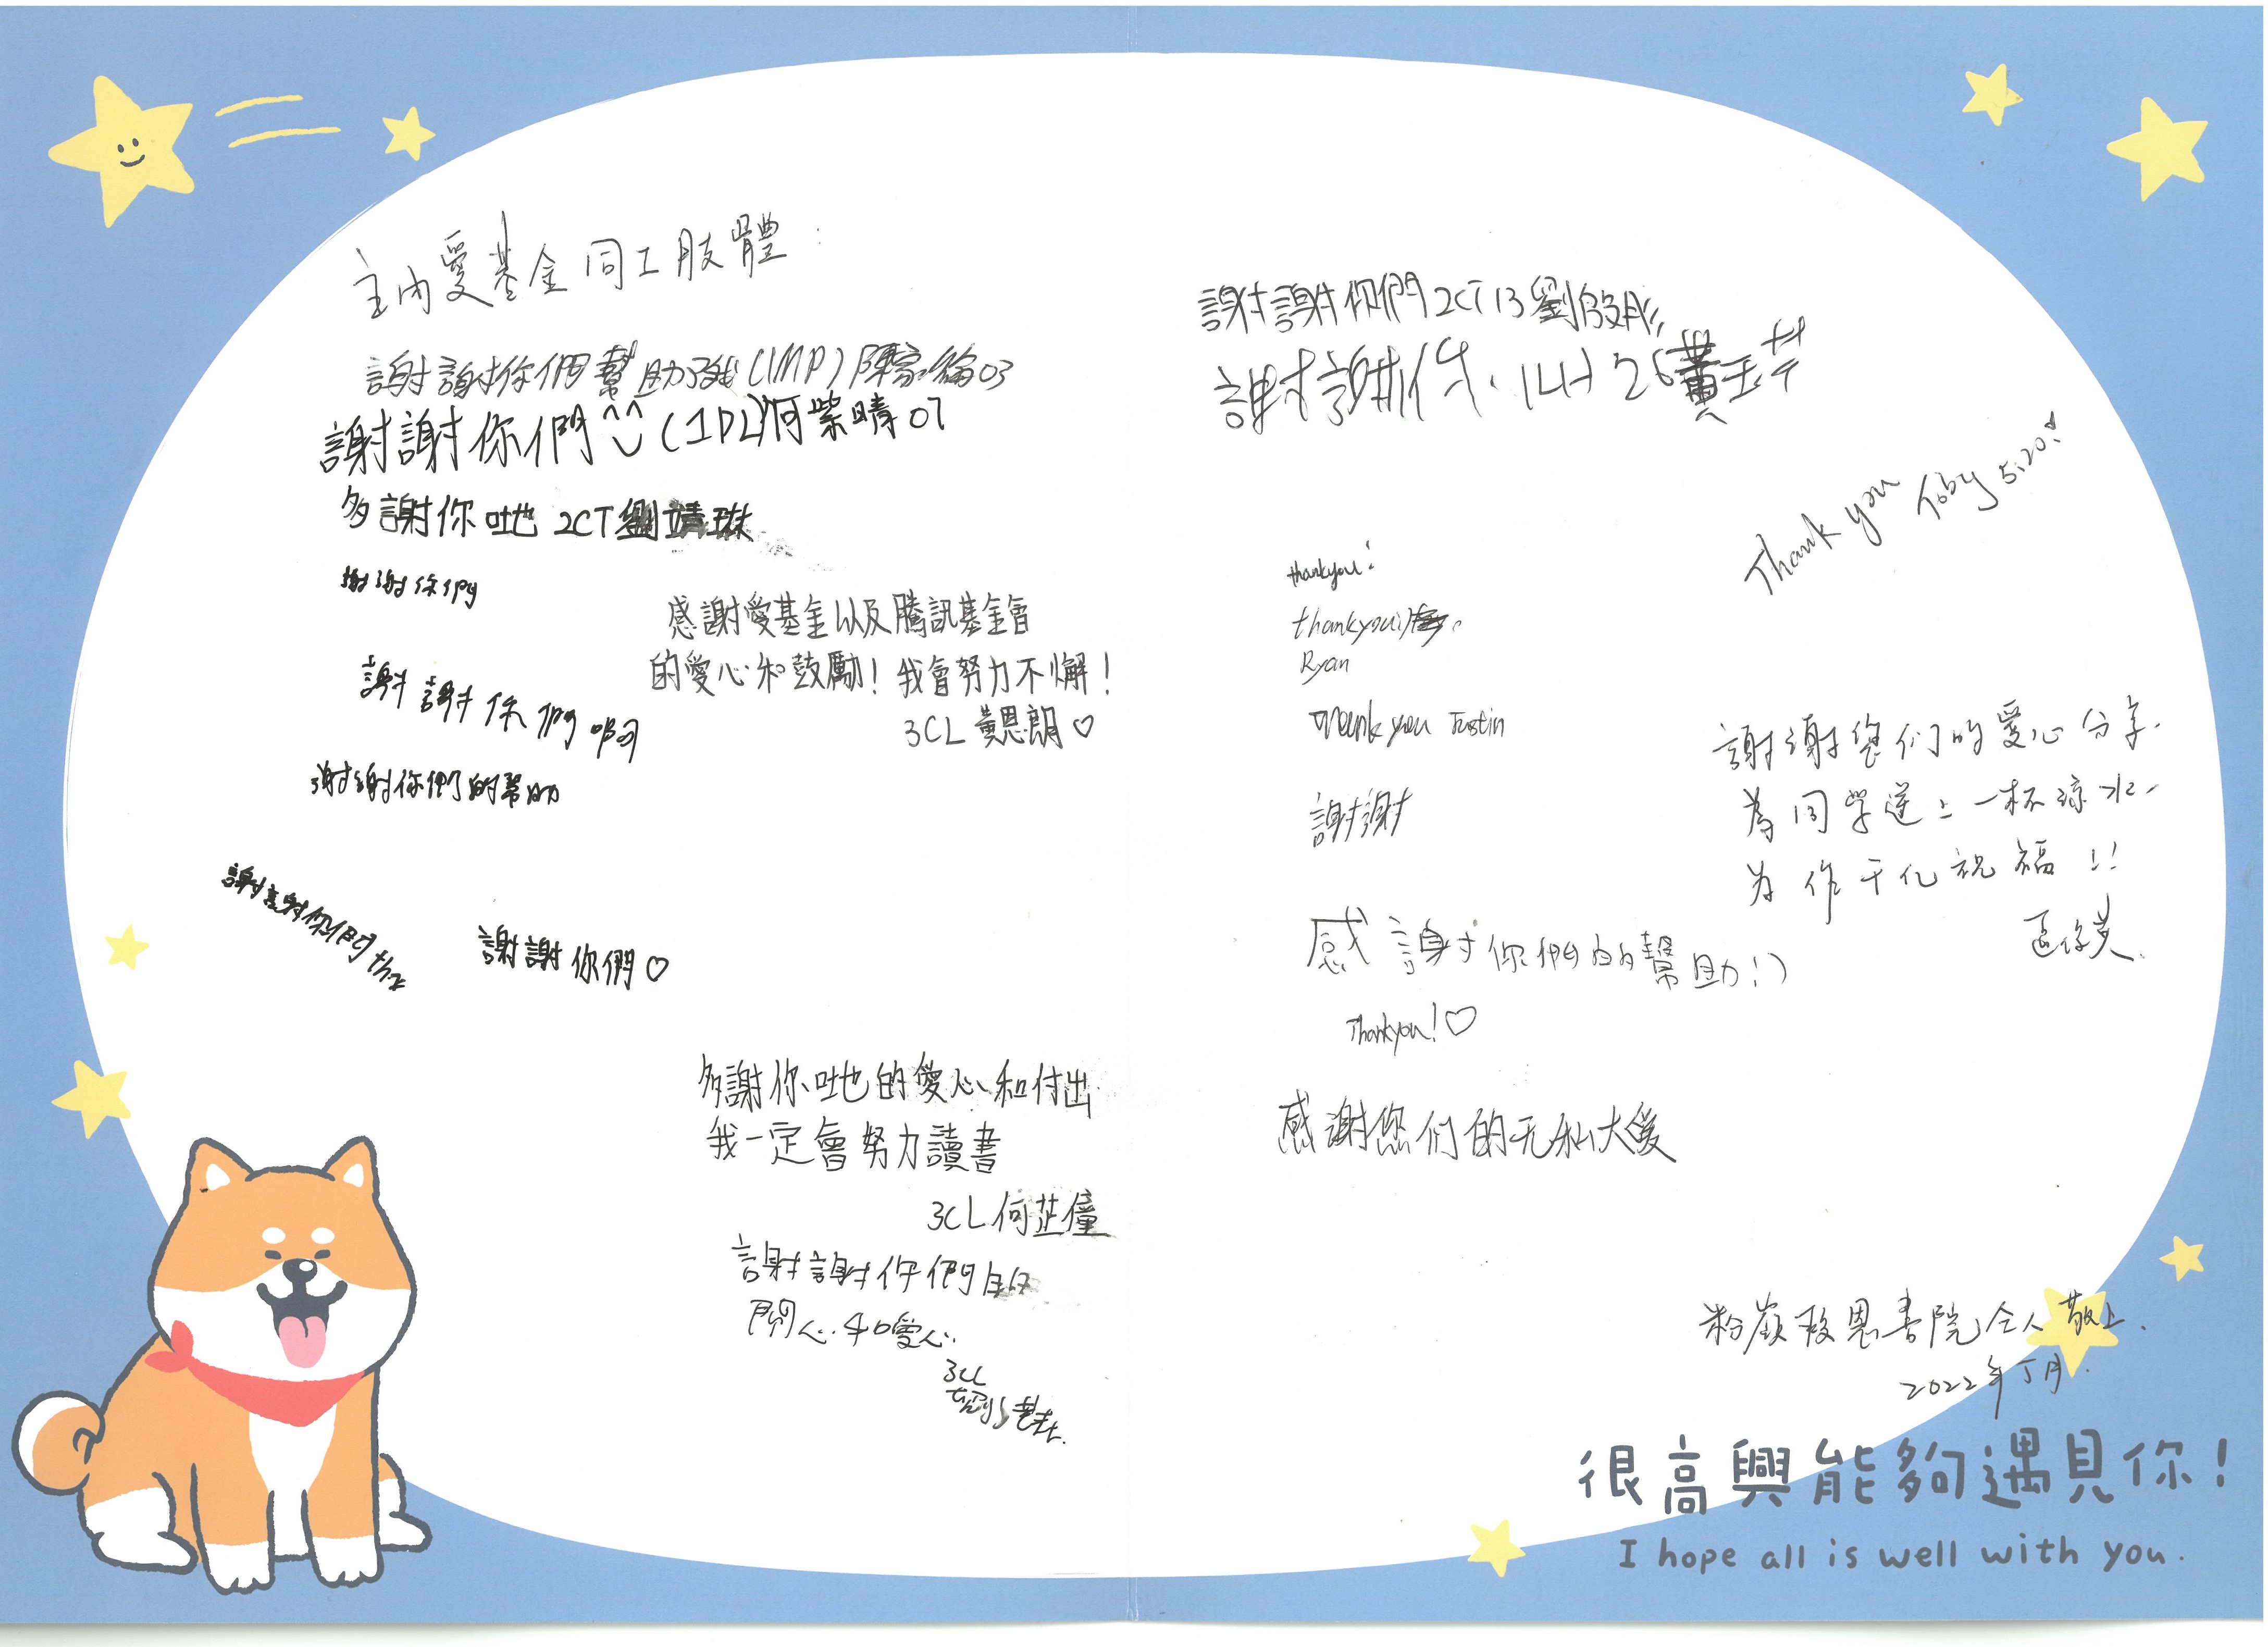 主内愛基金同工肢體:
謝謝你們幫助了我(1MP)陳家綸03
謝謝你們^^(1PL)何紫晴07
多謝你哋 2CT劉靖琳
謝謝你們
謝謝你們啊
謝謝你們的幫助
謝謝你們
謝謝你們♡
感謝愛基金以及騰訊基金會
的愛心和鼓勵!我會努力不懈!
3CL 黃恩朗♡
多謝你哋的愛心和付出
我一定會努力讀書
3CL 何芷僮
謝謝你們
關心和愛心
3CL
謝謝你們2CT13劉
謝謝你. 1LH 26黃玉
Thank you Toby 5:20!
thankyou!
thankyou
Ryan
Thank you Justin
謝謝
謝謝您们的愛心分享.
為同学送上一杯凉水,
为作千亿祝福!!
感謝你們的幫助!:)
Thankyou!♡
感謝您们的无私大愛
粉嶺救恩書院仝人敬上.
2022年5月.
很高興能夠遇見你!
I hope all is well with you.